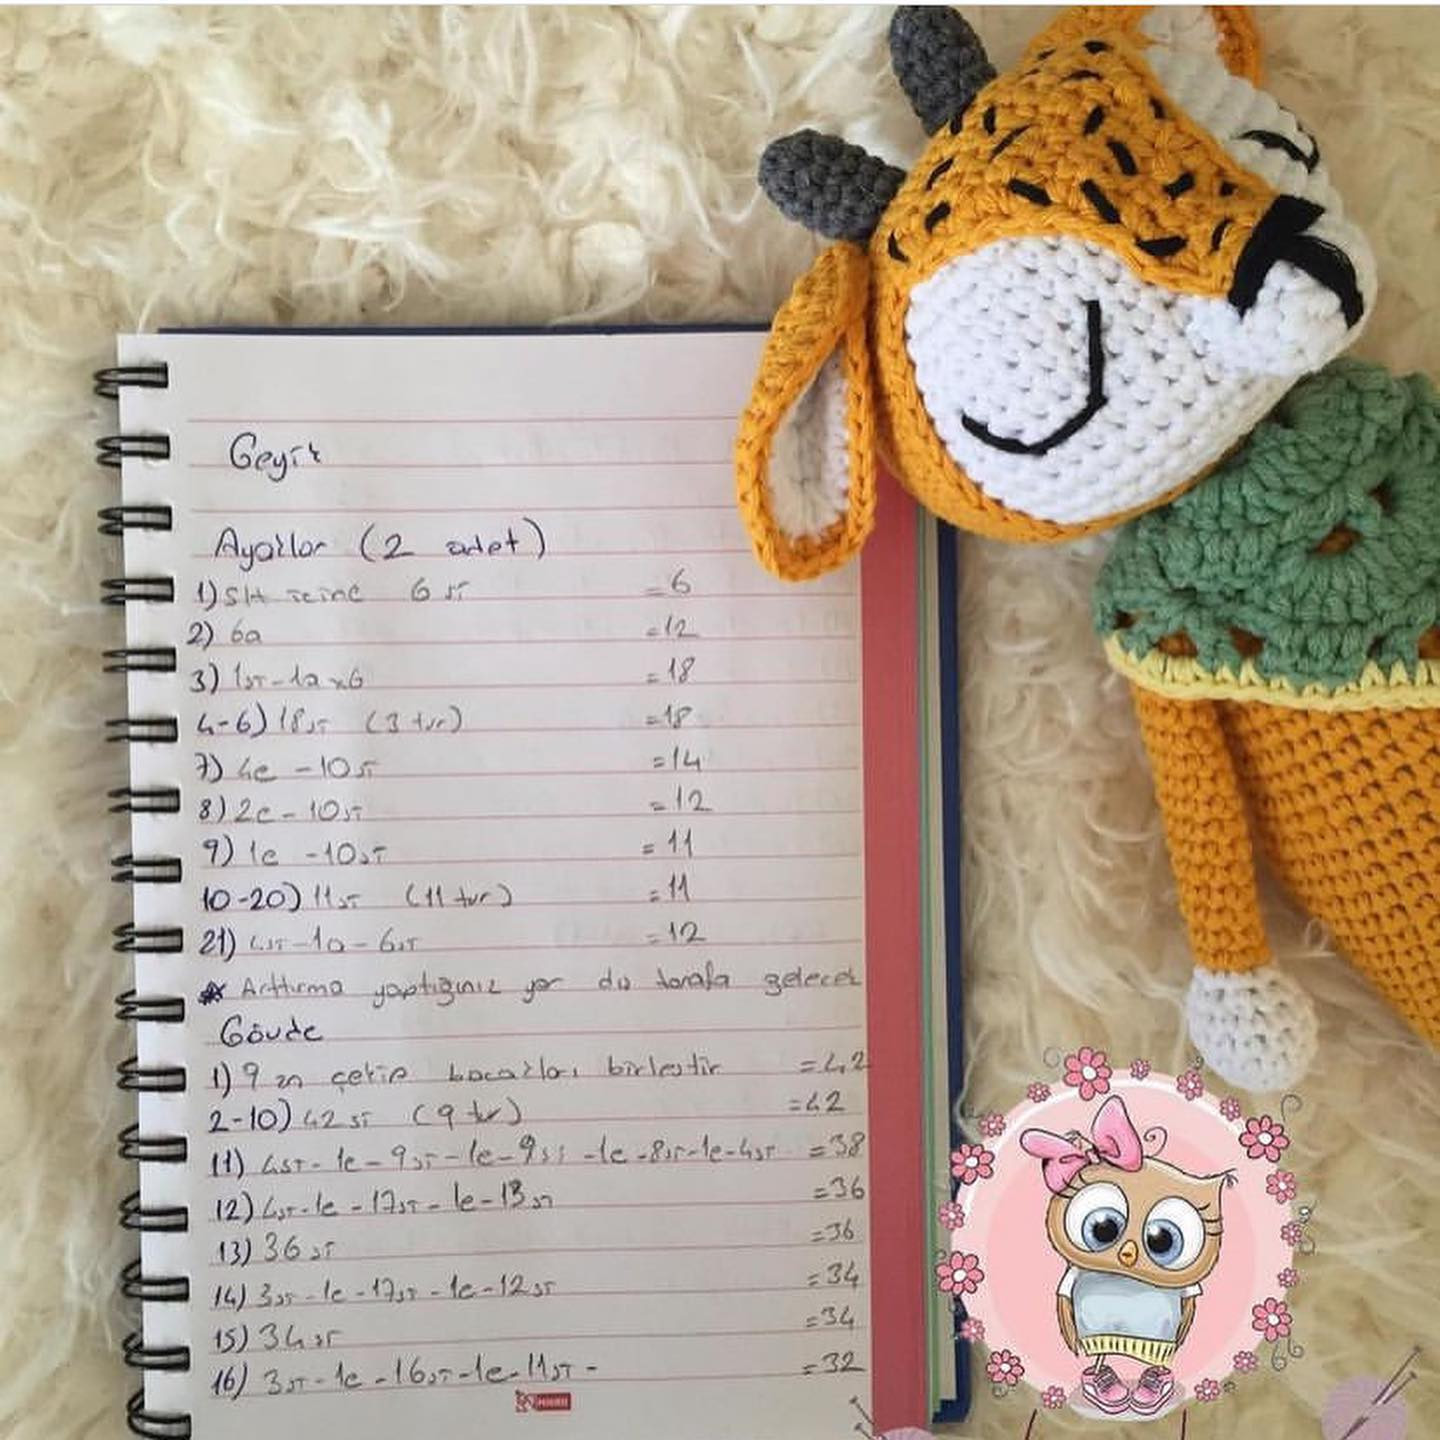 Geyik
Ayaklar (2 adet)
1) SH içine 6 sı = 6
2) 6a =12
3) 1sı-1a x6 =18
4-6) 18sı (3 tur) =18
7) 4e -10sı =14
8) 2e - 10sı =12
9) 1e -10sı = 11
10-20) 11sı (11 tur) =11
21) 4sı-1a-6sı =12
* Arttırma yaptığınız yer dış tarafa gelecek
Gövde
1) 9 zn çekip bacakları birleştir =42
2-10) 42sı (9 tur) =42
11) 4sı-1e-9sı-1e-9sı-1e-8sı-1e-4sı =38
12) 4sı-1e-17sı-1e-13sı =36
13) 36sı =36
14) 3sı-1e-17sı-1e-12sı =34
15) 34sı =34
16) 3sı-1e-16sı-1e-11sı- =32